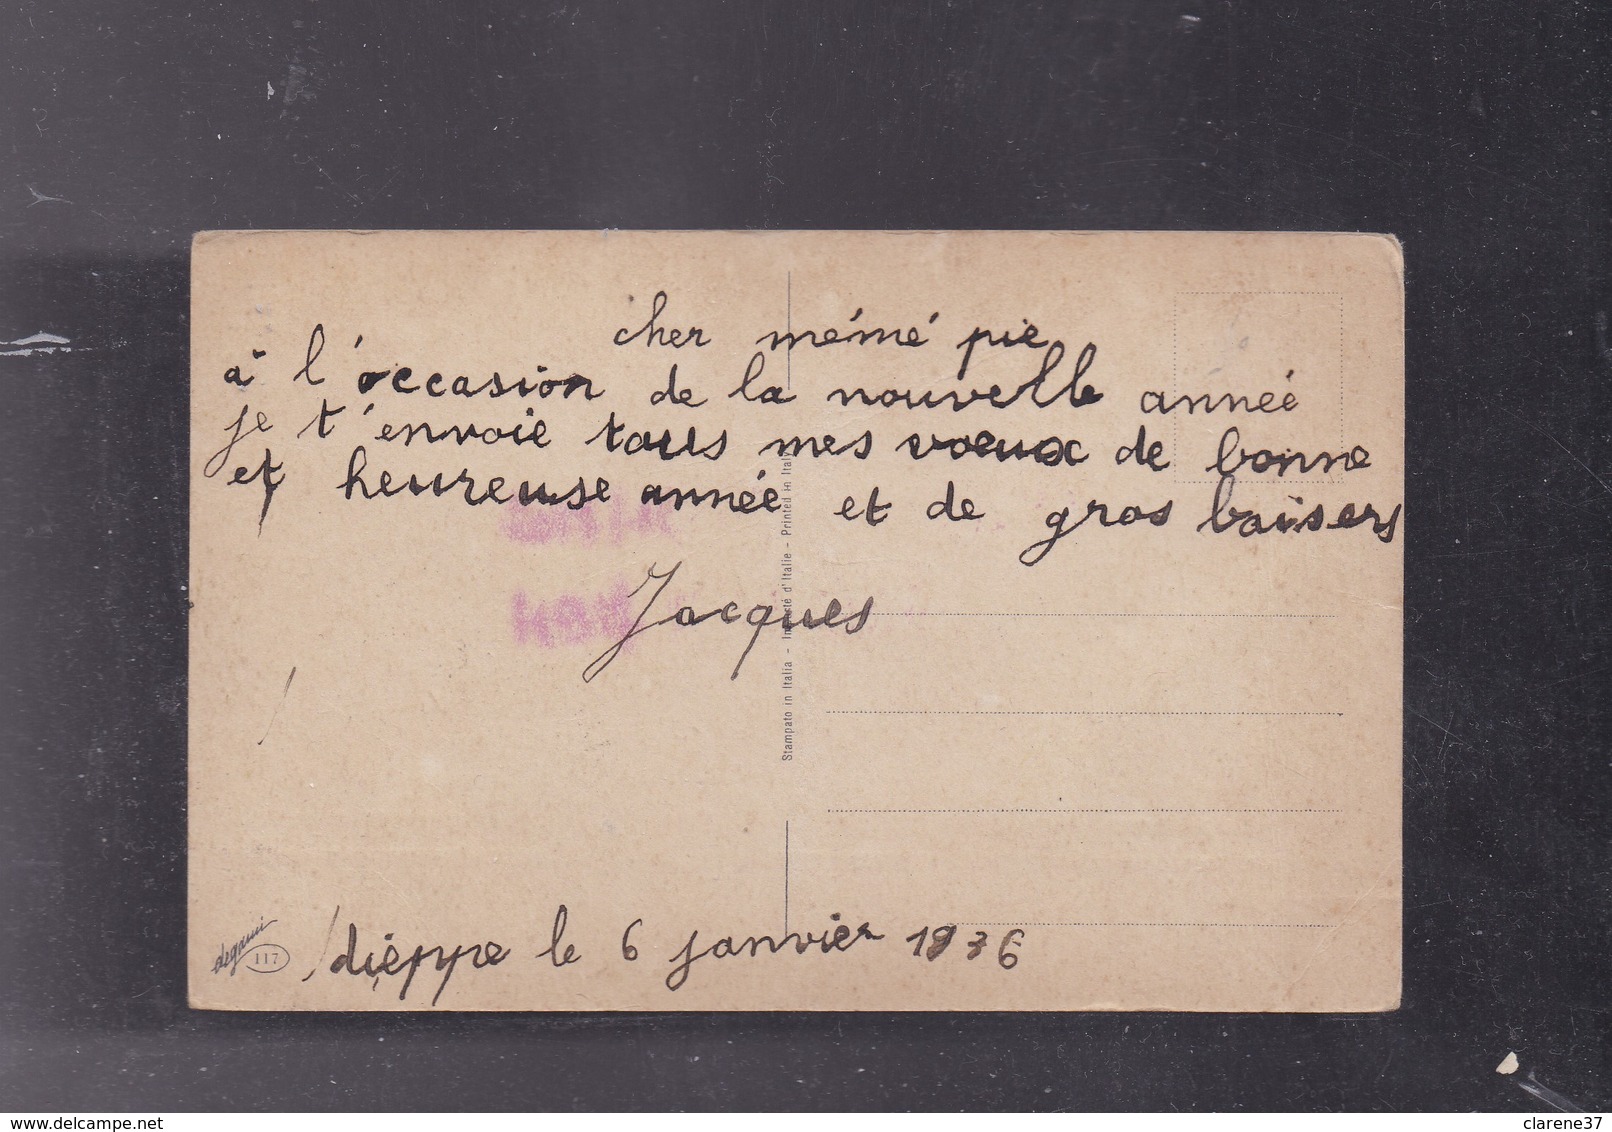 cher mémé pie
à l'occasion de la nouvelle année
je t'envoie tous mes voeux de bonne
et heureuse année et de gros baisers
Jacques
Stampato in Italia - Imprimé d'Italie - Printed in Italy
degami
117
dieppe le 6 janvier 1936
delcampe.net
clarene37